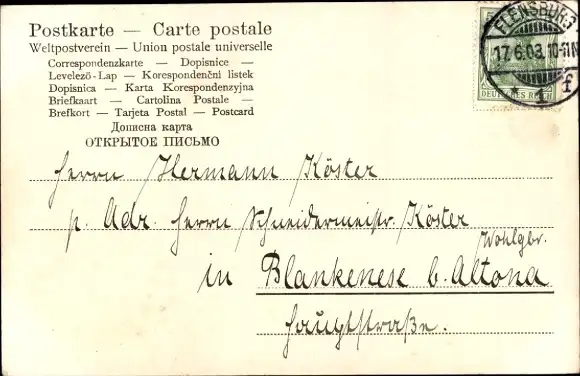 Postkarte — Carte postale
Weltpostverein — Union postale universelle
Correspondenzkarte — Dopisnice —
Levelező-Lap — Korespondenční listek
Dopisnica — Karta Korespondenzyjna
Briefkaart — Cartolina Postale —
Brefkort — Tarjeta Postal — Postcard
Дописна карта
ОТКРЫТОЕ ПИСЬМО
FLENSBURG
17.6.03. 10-11N
* 1 f
DEUTSCHES REICH
Herrn Hermann Köster
p. Adr. Herrn Schneidermeistr. Köster
Wohlgbr.
in Blankenese b. Altona
Hauptstraße.